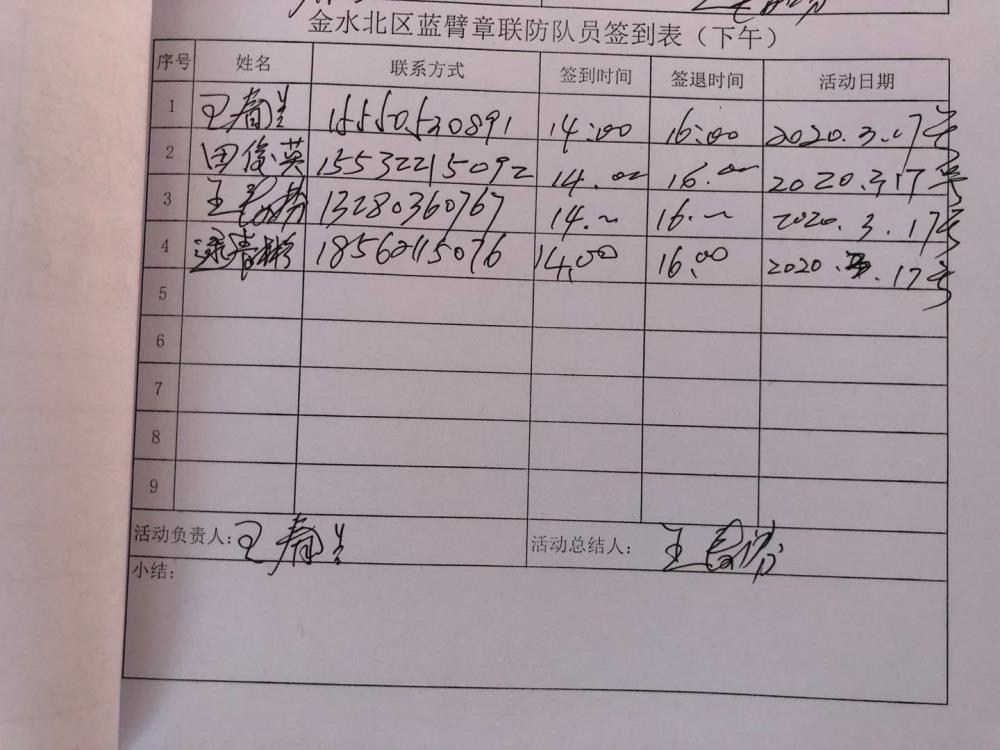 金水北区蓝臂章联防队员签到表（下午）
序号 姓名 联系方式 签到时间 签退时间 活动日期
1 王春兰 15550530891 14:00 16:00 2020.3.17号
2 田俊英 15532215092 14.00 16.00 2020.3.17号
3 王 13280360767 14.~ 16.~ 2020.3.17号
4 青彬 18560115076 14.00 16.00 2020.3.17号
5
6
7
8
9
活动负责人：王春兰 活动总结人：王
小结：